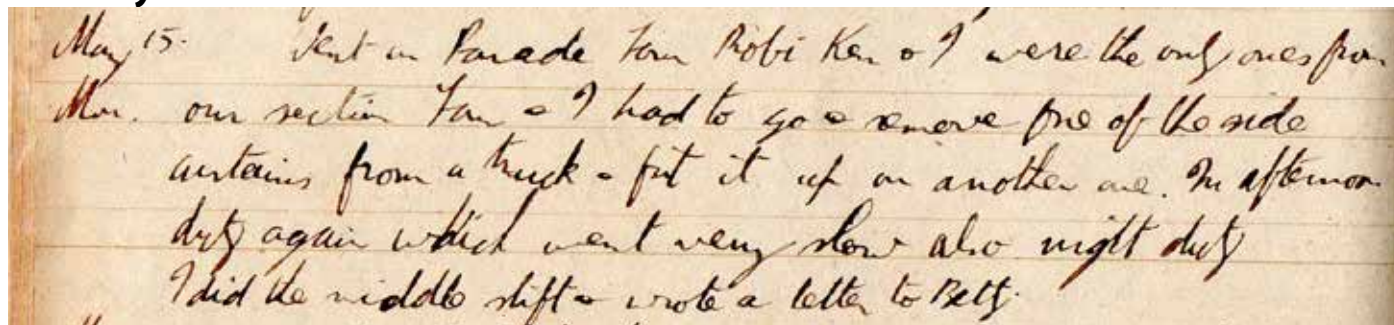 May 15. Went on Parade Tom Robi Ken & I were the only ones from
Mon. our section Tom & I had to go & remove one of the side
curtains from a truck & fit it up on another one. In afternoon
duty again which went very slow also night duty
I did the middle shift & wrote a letter to Betty.